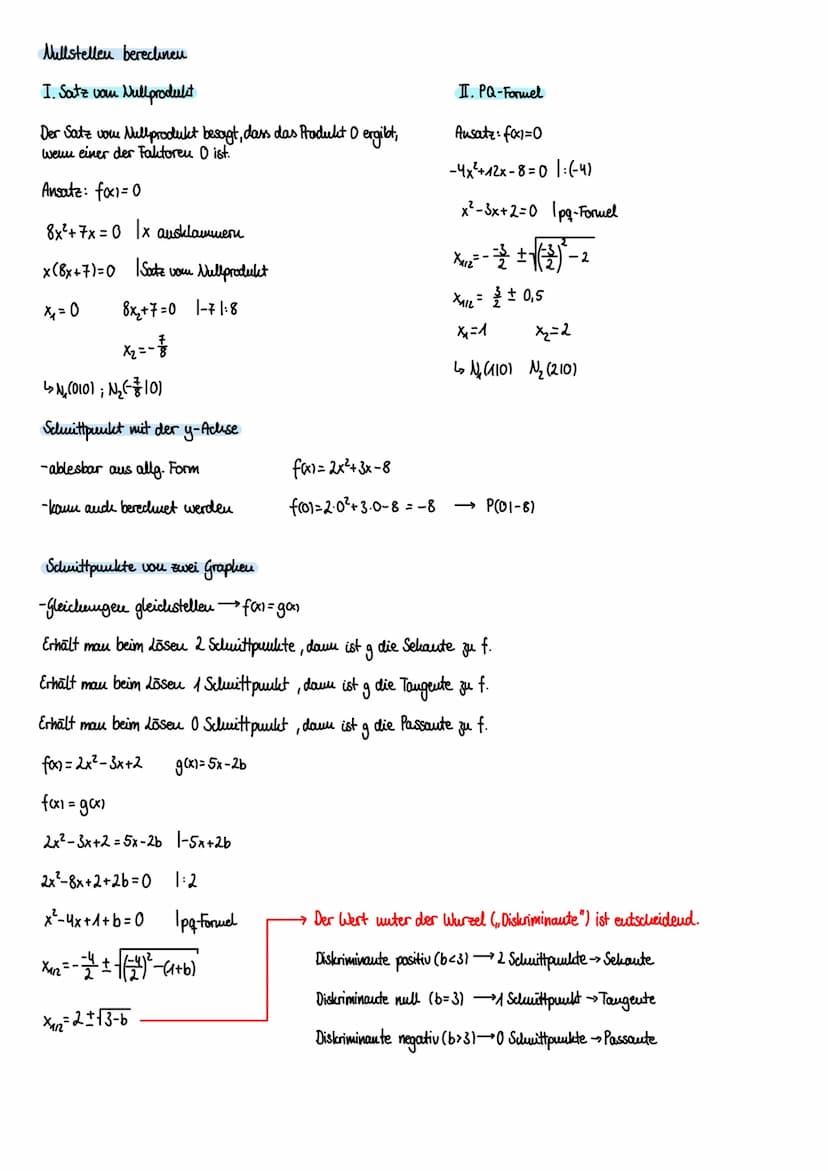 Nullstellen berechnen
I. Satz vom Nullprodukt
Der Satz vom Nullprodukt besagt, dass das Produkt 0 ergibt,
wenn einer der Faktoren 0 ist.
Ansatz: f(x)=0
8x²+7x=0 |x ausklammern
x(8x+7)=0 |Satz vom Nullprodukt
x₁=0 8x₂+7=0 |-7 |:8
x₂=-7/8
↳ N₁(0|0) ; N₂(-7/8|0)
II. PQ-Formel
Ansatz: f(x)=0
-4x²+12x-8=0 |:(-4)
x²-3x+2=0 |pq-Formel
x₁/₂=-(-3/2)±√((-3/2)²-2)
x₁/₂=3/2±0,5
x₁=1 x₂=2
↳ N₁(1|0) N₂(2|0)
Schnittpunkt mit der y-Achse
-ablesbar aus allg. Form f(x)=2x²+3x-8
-kann auch berechnet werden f(0)=2·0²+3·0-8=-8 → P(0|-8)
Schnittpunkte von zwei Graphen
-Gleichungen gleichstellen → f(x)=g(x)
Erhält man beim Lösen 2 Schnittpunkte, dann ist g die Sekante zu f.
Erhält man beim Lösen 1 Schnittpunkt, dann ist g die Tangente zu f.
Erhält man beim Lösen 0 Schnittpunkt, dann ist g die Passante zu f.
f(x)=2x²-3x+2 g(x)=5x-2b
f(x)=g(x)
2x²-3x+2=5x-2b |-5x+2b
2x²-8x+2+2b=0 |:2
x²-4x+1+b=0 |pq-Formel
x₁/₂=-(-4/2)±√((-4/2)²-(1+b))
x₁/₂=2±√(3-b)
→ Der Wert unter der Wurzel („Diskriminante") ist entscheidend.
Diskriminante positiv (b<3) → 2 Schnittpunkte → Sekante
Diskriminante null (b=3) → 1 Schnittpunkt → Tangente
Diskriminante negativ (b>3) → 0 Schnittpunkte → Passante